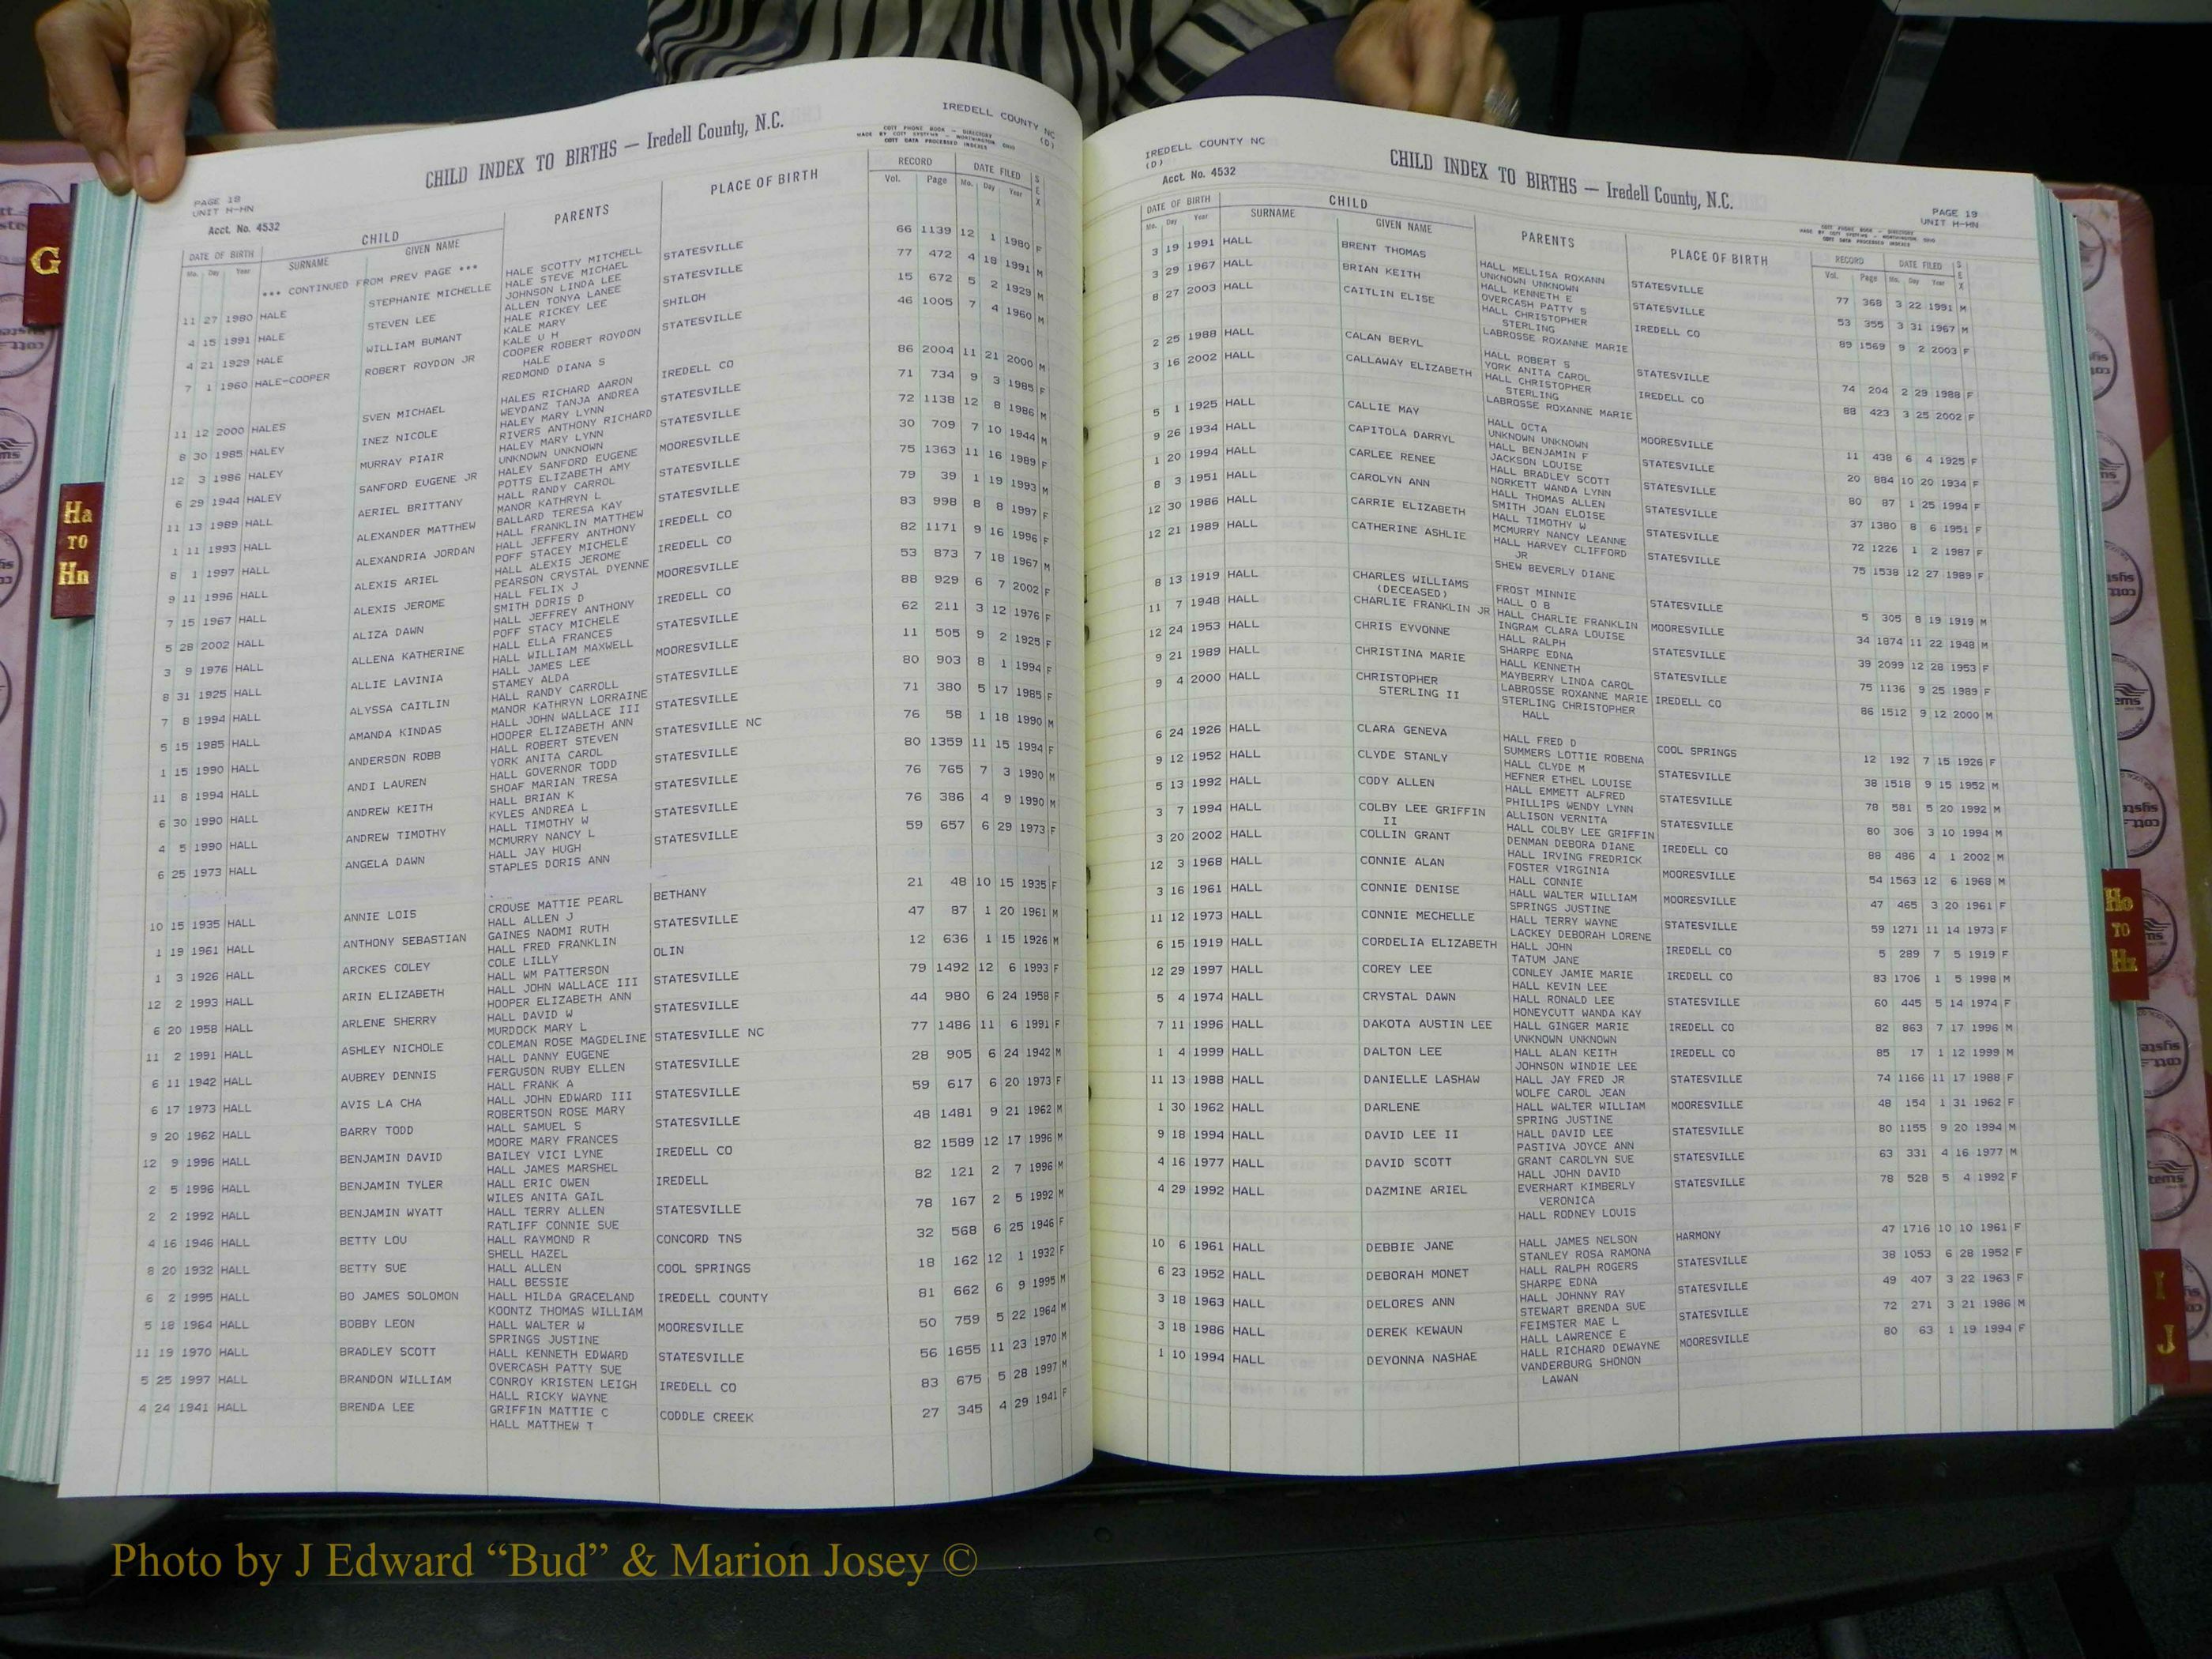 IREDELL COUNTY NC
(D)
CHILD INDEX TO BIRTHS — Iredell County, N.C.
COTT PHONE BOOK — DIRECTORY
MADE BY COTT SYSTEMS — WORTHINGTON, OHIO
COTT DATA PROCESSED INDEXES
PAGE 18
UNIT H-HN
Acct. No. 4532
DATE OF BIRTH CHILD PARENTS PLACE OF BIRTH RECORD DATE FILED SEX
Mo. Day Year SURNAME GIVEN NAME Vol. Page Mo. Day Year
*** CONTINUED FROM PREV PAGE ***
11 27 1980 HALE STEPHANIE MICHELLE HALE SCOTTY MITCHELL STATESVILLE 66 1139 12 1 1980 F
4 15 1991 HALE STEVEN LEE HALE STEVE MICHAEL STATESVILLE 77 472 4 18 1991 M
JOHNSON LINDA LEE
ALLEN TONYA LANEE
4 21 1929 HALE WILLIAM BUMANT HALE RICKEY LEE SHILOH 15 672 5 2 1929 M
KALE MARY
KALE U H
7 1 1960 HALE-COOPER ROBERT ROYDON JR COOPER ROBERT ROYDON STATESVILLE 46 1005 7 4 1960 M
HALE
REDMOND DIANA S
11 12 2000 HALES SVEN MICHAEL HALES RICHARD AARON IREDELL CO 86 2004 11 21 2000 M
WEYDANZ TANJA ANDREA
8 30 1985 HALEY INEZ NICOLE HALEY MARY LYNN STATESVILLE 71 734 9 3 1985 F
RIVERS ANTHONY RICHARD
12 3 1986 HALEY MURRAY PIAIR HALEY MARY LYNN STATESVILLE 72 1138 12 8 1986 M
UNKNOWN UNKNOWN
6 29 1944 HALEY SANFORD EUGENE JR HALEY SANFORD EUGENE MOORESVILLE 30 709 7 10 1944 M
POTTS ELIZABETH AMY
11 13 1989 HALL AERIEL BRITTANY HALL RANDY CARROL STATESVILLE 75 1363 11 16 1989 F
MANOR KATHRYN L
1 11 1993 HALL ALEXANDER MATTHEW BALLARD TERESA KAY STATESVILLE 79 39 1 19 1993 M
HALL FRANKLIN MATTHEW
8 1 1997 HALL ALEXANDRIA JORDAN HALL JEFFERY ANTHONY IREDELL CO 83 998 8 8 1997 F
POFF STACEY MICHELE
9 11 1996 HALL ALEXIS ARIEL HALL ALEXIS JEROME IREDELL CO 82 1171 9 16 1996 F
PEARSON CRYSTAL DYENNE
7 15 1967 HALL ALEXIS JEROME HALL FELIX J MOORESVILLE 53 873 7 18 1967 M
SMITH DORIS D
5 28 2002 HALL ALIZA DAWN HALL JEFFREY ANTHONY IREDELL CO 88 929 6 7 2002 F
POFF STACY MICHELE
3 9 1976 HALL ALLENA KATHERINE HALL ELLA FRANCES STATESVILLE 62 211 3 12 1976 F
HALL WILLIAM MAXWELL
8 31 1925 HALL ALLIE LAVINIA HALL JAMES LEE MOORESVILLE 11 505 9 2 1925 F
STAMEY ALDA
7 8 1994 HALL ALYSSA CAITLIN HALL RANDY CARROLL STATESVILLE 80 903 8 1 1994 F
MANOR KATHRYN LORRAINE
5 15 1985 HALL AMANDA KINDAS HALL JOHN WALLACE III STATESVILLE 71 380 5 17 1985 F
HOOPER ELIZABETH ANN
1 15 1990 HALL ANDERSON ROBB HALL ROBERT STEVEN STATESVILLE NC 76 58 1 18 1990 M
YORK ANITA CAROL
11 8 1994 HALL ANDI LAUREN HALL GOVERNOR TODD STATESVILLE 80 1359 11 15 1994 F
SHOAF MARIAN TRESA
6 30 1990 HALL ANDREW KEITH HALL BRIAN K STATESVILLE 76 765 7 3 1990 M
KYLES ANDREA L
4 5 1990 HALL ANDREW TIMOTHY HALL TIMOTHY W STATESVILLE 76 386 4 9 1990 M
MCMURRY NANCY L
6 25 1973 HALL ANGELA DAWN HALL JAY HUGH STATESVILLE 59 657 6 29 1973 F
STAPLES DORIS ANN
10 15 1935 HALL ANNIE LOIS CROUSE MATTIE PEARL BETHANY 21 48 10 15 1935 F
HALL ALLEN J
1 19 1961 HALL ANTHONY SEBASTIAN GAINES NAOMI RUTH STATESVILLE 47 87 1 20 1961 M
HALL FRED FRANKLIN
1 3 1926 HALL ARCKES COLEY COLE LILLY OLIN 12 636 1 15 1926 M
HALL WM PATTERSON
12 2 1993 HALL ARIN ELIZABETH HALL JOHN WALLACE III STATESVILLE 79 1492 12 6 1993 F
HOOPER ELIZABETH ANN
6 20 1958 HALL ARLENE SHERRY HALL DAVID W STATESVILLE 44 980 6 24 1958 F
MURDOCK MARY L
11 2 1991 HALL ASHLEY NICHOLE COLEMAN ROSE MAGDELINE STATESVILLE NC 77 1486 11 6 1991 F
HALL DANNY EUGENE
6 11 1942 HALL AUBREY DENNIS FERGUSON RUBY ELLEN STATESVILLE 28 905 6 24 1942 M
HALL FRANK A
6 17 1973 HALL AVIS LA CHA HALL JOHN EDWARD III STATESVILLE 59 617 6 20 1973 F
ROBERTSON ROSE MARY
9 20 1962 HALL BARRY TODD HALL SAMUEL S STATESVILLE 48 1481 9 21 1962 M
MOORE MARY FRANCES
12 9 1996 HALL BENJAMIN DAVID BAILEY VICI LYNE IREDELL CO 82 1589 12 17 1996 M
HALL JAMES MARSHEL
2 5 1996 HALL BENJAMIN TYLER HALL ERIC OWEN IREDELL 82 121 2 7 1996 M
WILES ANITA GAIL
2 2 1992 HALL BENJAMIN WYATT HALL TERRY ALLEN STATESVILLE 78 167 2 5 1992 M
RATLIFF CONNIE SUE
4 16 1946 HALL BETTY LOU HALL RAYMOND R CONCORD TNS 32 568 6 25 1946 F
SHELL HAZEL
8 20 1932 HALL BETTY SUE HALL ALLEN COOL SPRINGS 18 162 12 1 1932 F
HALL BESSIE
6 2 1995 HALL BO JAMES SOLOMON HALL HILDA GRACELAND IREDELL COUNTY 81 662 6 9 1995 M
KOONTZ THOMAS WILLIAM
5 18 1964 HALL BOBBY LEON HALL WALTER W MOORESVILLE 50 759 5 22 1964 M
SPRINGS JUSTINE
11 19 1970 HALL BRADLEY SCOTT HALL KENNETH EDWARD STATESVILLE 56 1655 11 23 1970 M
OVERCASH PATTY SUE
5 25 1997 HALL BRANDON WILLIAM CONROY KRISTEN LEIGH IREDELL CO 83 675 5 28 1997 M
HALL RICKY WAYNE
4 24 1941 HALL BRENDA LEE GRIFFIN MATTIE C CODDLE CREEK 27 345 4 29 1941 F
HALL MATTHEW T
IREDELL COUNTY NC
(D)
Acct. No. 4532
CHILD INDEX TO BIRTHS — Iredell County, N.C.
PAGE 19
UNIT H-HN
COTT PHONE BOOK — DIRECTORY
MADE BY COTT SYSTEMS — WORTHINGTON, OHIO
COTT DATA PROCESSED INDEXES
DATE OF BIRTH CHILD PARENTS PLACE OF BIRTH RECORD DATE FILED SEX
Mo. Day Year SURNAME GIVEN NAME Vol. Page Mo. Day Year
3 19 1991 HALL BRENT THOMAS HALL MELLISA ROXANN STATESVILLE 77 368 3 22 1991 M
UNKNOWN UNKNOWN
3 29 1967 HALL BRIAN KEITH HALL KENNETH E STATESVILLE 53 355 3 31 1967 M
OVERCASH PATTY S
8 27 2003 HALL CAITLIN ELISE HALL CHRISTOPHER IREDELL CO 89 1569 9 2 2003 F
STERLING
LABROSSE ROXANNE MARIE
2 25 1988 HALL CALAN BERYL HALL ROBERT S STATESVILLE 74 204 2 29 1988 F
YORK ANITA CAROL
3 16 2002 HALL CALLAWAY ELIZABETH HALL CHRISTOPHER IREDELL CO 88 423 3 25 2002 F
STERLING
LABROSSE ROXANNE MARIE
5 1 1925 HALL CALLIE MAY HALL OCTA MOORESVILLE 11 438 6 4 1925 F
UNKNOWN UNKNOWN
9 26 1934 HALL CAPITOLA DARRYL HALL BENJAMIN F STATESVILLE 20 884 10 20 1934 F
JACKSON LOUISE
1 20 1994 HALL CARLEE RENEE HALL BRADLEY SCOTT STATESVILLE 80 87 1 25 1994 F
NORKETT WANDA LYNN
8 3 1951 HALL CAROLYN ANN HALL THOMAS ALLEN STATESVILLE 37 1380 8 6 1951 F
SMITH JOAN ELOISE
12 30 1986 HALL CARRIE ELIZABETH HALL TIMOTHY W STATESVILLE 72 1226 1 2 1987 F
MCMURRY NANCY LEANNE
12 21 1989 HALL CATHERINE ASHLIE HALL HARVEY CLIFFORD STATESVILLE 75 1538 12 27 1989 F
JR
SHEW BEVERLY DIANE
8 13 1919 HALL CHARLES WILLIAMS FROST MINNIE STATESVILLE 5 305 8 19 1919 M
(DECEASED) HALL O B
11 7 1948 HALL CHARLIE FRANKLIN JR HALL CHARLIE FRANKLIN MOORESVILLE 34 1874 11 22 1948 M
INGRAM CLARA LOUISE
12 24 1953 HALL CHRIS EYVONNE HALL RALPH STATESVILLE 39 2099 12 28 1953 F
SHARPE EDNA
9 21 1989 HALL CHRISTINA MARIE HALL KENNETH STATESVILLE 75 1136 9 25 1989 F
MAYBERRY LINDA CAROL
9 4 2000 HALL CHRISTOPHER LABROSSE ROXANNE MARIE IREDELL CO 86 1512 9 12 2000 M
STERLING II STERLING CHRISTOPHER
HALL
6 24 1926 HALL CLARA GENEVA HALL FRED D COOL SPRINGS 12 192 7 15 1926 F
SUMMERS LOTTIE ROBENA
9 12 1952 HALL CLYDE STANLY HALL CLYDE M STATESVILLE 38 1518 9 15 1952 M
HEFNER ETHEL LOUISE
5 13 1992 HALL CODY ALLEN HALL EMMETT ALFRED STATESVILLE 78 581 5 20 1992 M
PHILLIPS WENDY LYNN
3 7 1994 HALL COLBY LEE GRIFFIN ALLISON VERNITA STATESVILLE 80 306 3 10 1994 M
II HALL COLBY LEE GRIFFIN
3 20 2002 HALL COLLIN GRANT DENMAN DEBORA DIANE IREDELL CO 88 486 4 1 2002 M
HALL IRVING FREDRICK
12 3 1968 HALL CONNIE ALAN FOSTER VIRGINIA MOORESVILLE 54 1563 12 6 1968 M
HALL CONNIE
3 16 1961 HALL CONNIE DENISE HALL WALTER WILLIAM MOORESVILLE 47 465 3 20 1961 F
SPRINGS JUSTINE
11 12 1973 HALL CONNIE MECHELLE HALL TERRY WAYNE STATESVILLE 59 1271 11 14 1973 F
LACKEY DEBORAH LORENE
6 15 1919 HALL CORDELIA ELIZABETH HALL JOHN IREDELL CO 5 289 7 5 1919 F
TATUM JANE
12 29 1997 HALL COREY LEE CONLEY JAMIE MARIE IREDELL CO 83 1706 1 5 1998 M
HALL KEVIN LEE
5 4 1974 HALL CRYSTAL DAWN HALL RONALD LEE STATESVILLE 60 445 5 14 1974 F
HONEYCUTT WANDA KAY
7 11 1996 HALL DAKOTA AUSTIN LEE HALL GINGER MARIE IREDELL CO 82 863 7 17 1996 M
UNKNOWN UNKNOWN
1 4 1999 HALL DALTON LEE HALL ALAN KEITH IREDELL CO 85 17 1 12 1999 M
JOHNSON WINDIE LEE
11 13 1988 HALL DANIELLE LASHAW HALL JAY FRED JR STATESVILLE 74 1166 11 17 1988 F
WOLFE CAROL JEAN
1 30 1962 HALL DARLENE HALL WALTER WILLIAM MOORESVILLE 48 154 1 31 1962 F
SPRING JUSTINE
9 18 1994 HALL DAVID LEE II HALL DAVID LEE STATESVILLE 80 1155 9 20 1994 M
PASTIVA JOYCE ANN
4 16 1977 HALL DAVID SCOTT GRANT CAROLYN SUE STATESVILLE 63 331 4 16 1977 M
HALL JOHN DAVID
4 29 1992 HALL DAZMINE ARIEL EVERHART KIMBERLY STATESVILLE 78 528 5 4 1992 F
VERONICA
HALL RODNEY LOUIS
10 6 1961 HALL DEBBIE JANE HALL JAMES NELSON HARMONY 47 1716 10 10 1961 F
STANLEY ROSA RAMONA
6 23 1952 HALL DEBORAH MONET HALL RALPH ROGERS STATESVILLE 38 1053 6 28 1952 F
SHARPE EDNA
3 18 1963 HALL DELORES ANN HALL JOHNNY RAY STATESVILLE 49 407 3 22 1963 F
STEWART BRENDA SUE
3 18 1986 HALL DEREK KEWAUN FEIMSTER MAE L STATESVILLE 72 271 3 21 1986 M
HALL LAWRENCE E
1 10 1994 HALL DEYONNA NASHAE HALL RICHARD DEWAYNE MOORESVILLE 80 63 1 19 1994 F
VANDERBURG SHONON
LAWAN
G
Ha
TO
Hn
Ho
TO
Hz
I
J
Photo by J Edward “Bud” & Marion Josey ©